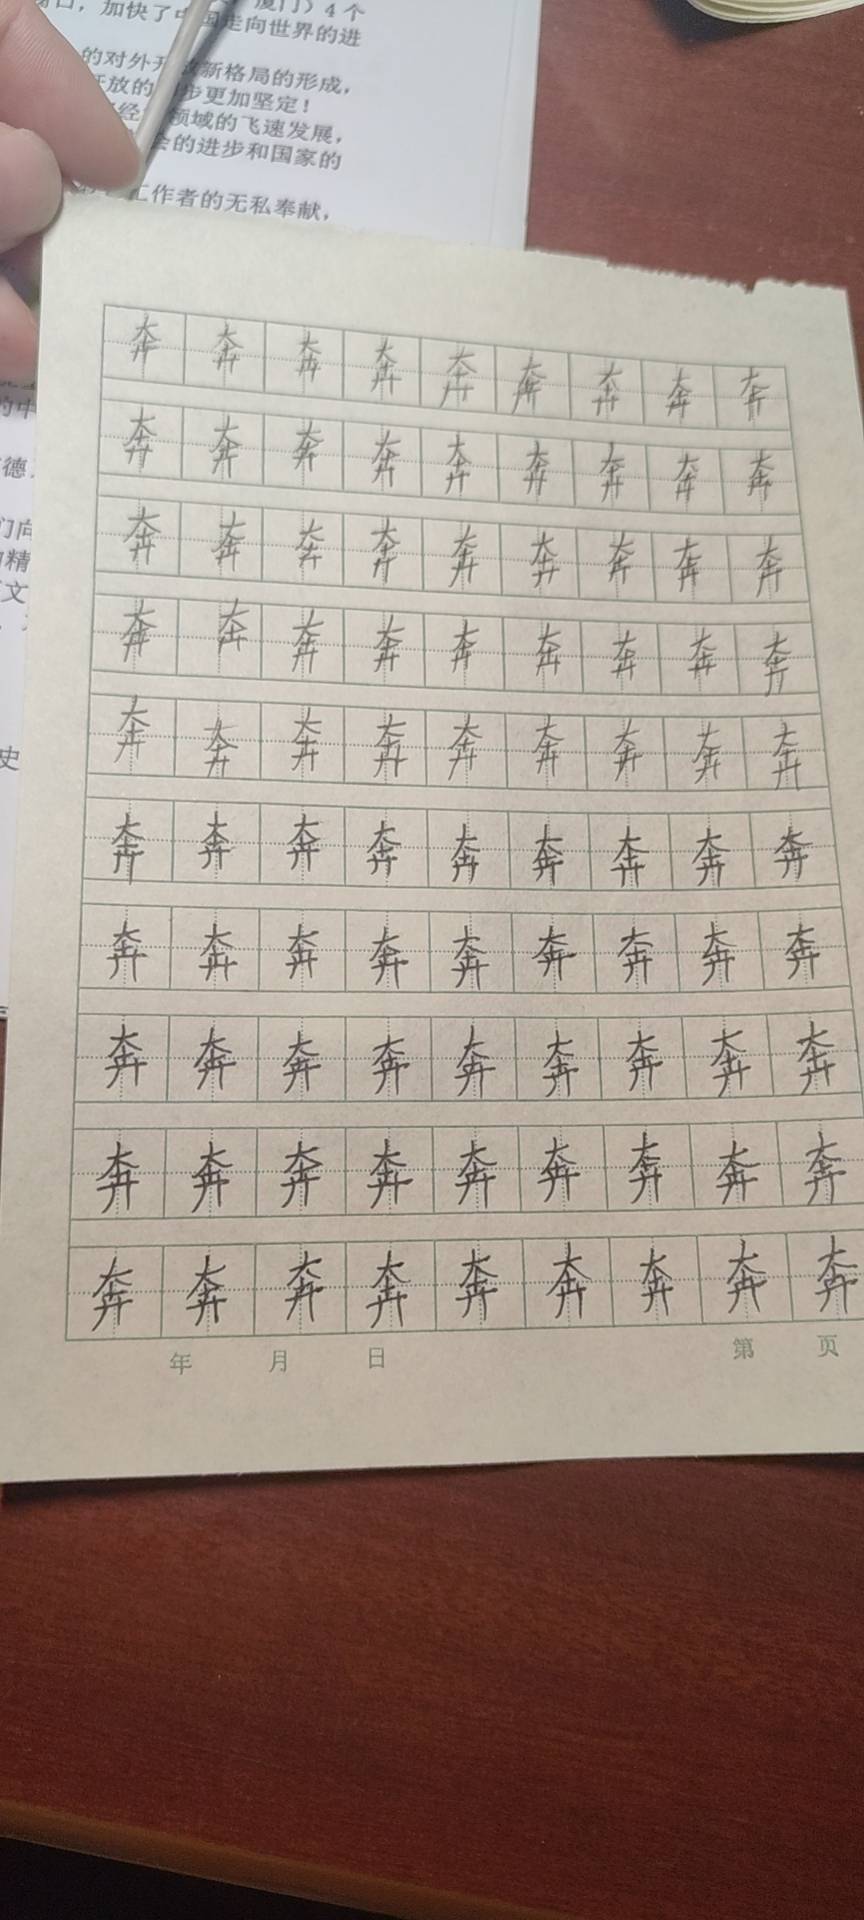 厦门）4个
口，加快了中国走向世界的进
的对外开放新格局的形成，
开放的 步更加坚定！
经 领域的飞速发展，
会的进步和国家的
工作者的无私奉献，
的中
德
们向
精
文
史
奔奔奔奔奔奔奔奔奔
奔奔奔奔奔奔奔奔奔
奔奔奔奔奔奔奔奔奔
奔奔奔奔奔奔奔奔奔
奔奔奔奔奔奔奔奔奔
奔奔奔奔奔奔奔奔奔
奔奔奔奔奔奔奔奔奔
奔奔奔奔奔奔奔奔奔
奔奔奔奔奔奔奔奔奔
奔奔奔奔奔奔奔奔奔
年 月 日 第 页